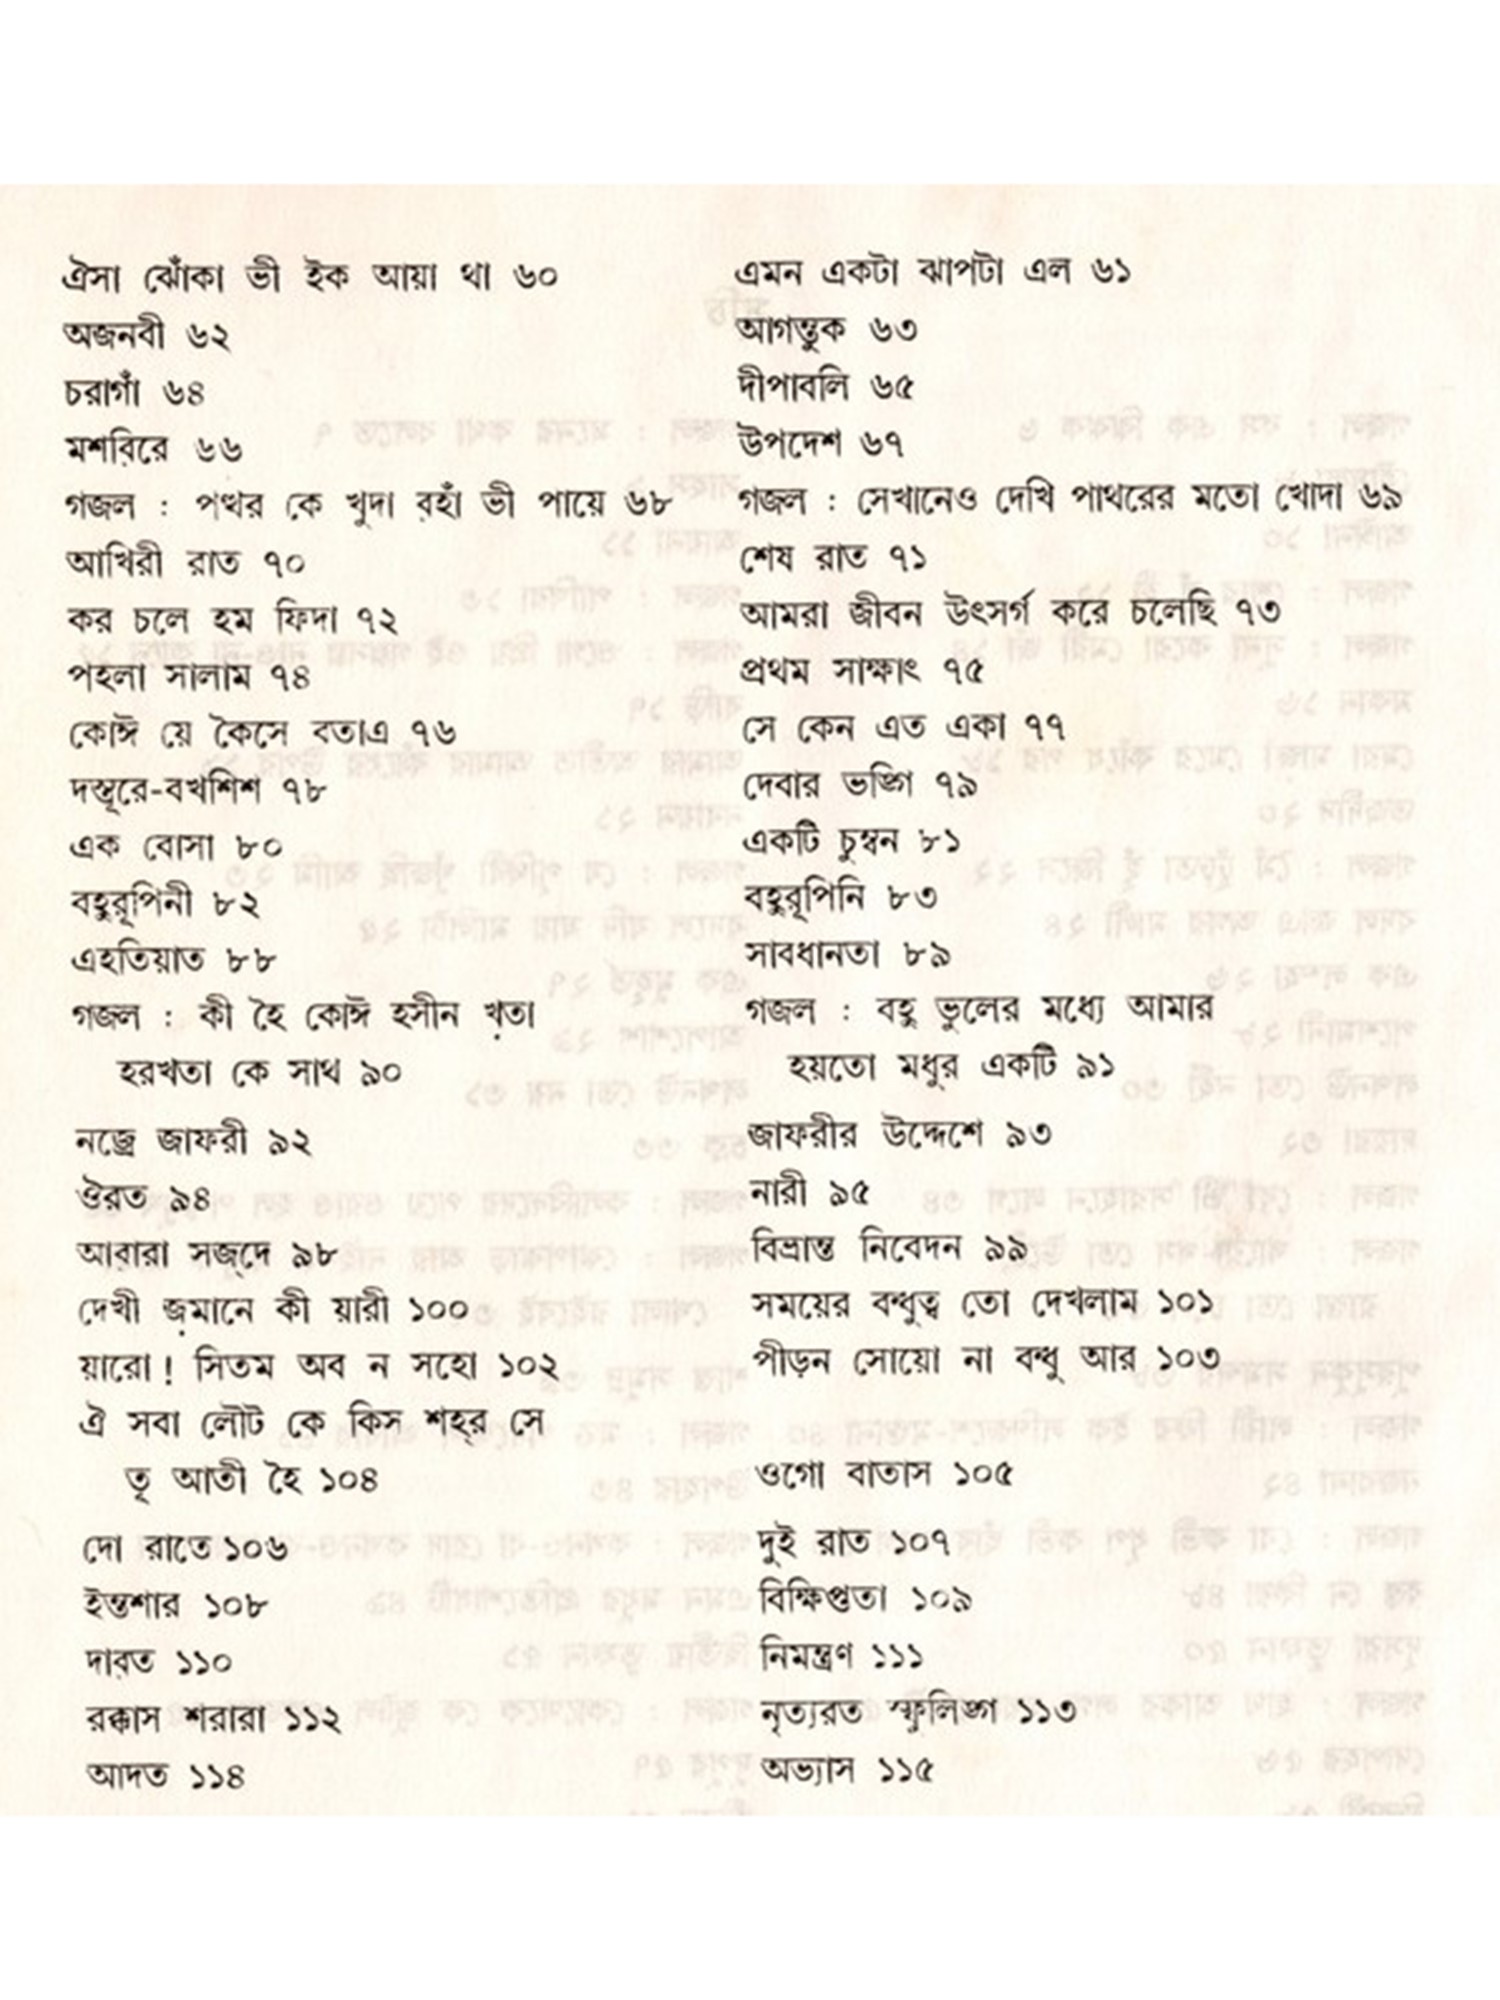 ঐসা ঝোঁকা ভী ইক আয়া থা ৬০
অজনবী ৬২
চরাগাঁ ৬৪
মশৱিরে ৬৬
গজল : পত্থর কে খুদা ৱহাঁ ভী পায়ে ৬৮
আখিরী রাত ৭০
কর চলে হম ফিদা ৭২
পহলা সালাম ৭৪
কোঈ য়ে কৈসে বতাএ ৭৬
দস্তূরে-বখশিশ ৭৮
এক বোসা ৮০
বহুরূপিনী ৮২
এহতিয়াত ৮৮
গজল : কী হৈ কোঈ হসীন খ়তা
হরখতা কে সাথ ৯০
নজ্রে জাফরী ৯২
ঔরত ৯৪
আৱারা সজ্‌দে ৯৮
দেখী জ়মানে কী য়ারী ১০০
য়ারো! সিতম অব ন সহো ১০২
ঐ সবা লৌট কে কিস শহ্‌র সে
তূ আতী হৈ ১০৪
দো রাতে ১০৬
ইন্তশার ১০৮
দাৱত ১১০
রক্কাস শরারা ১১২
আদত ১১৪
এমন একটা ঝাপটা এল ৬১
আগন্তুক ৬৩
দীপাবলি ৬৫
উপদেশ ৬৭
গজল : সেখানেও দেখি পাথরের মতো খোদা ৬৯
শেষ রাত ৭১
আমরা জীবন উৎসর্গ করে চলেছি ৭৩
প্রথম সাক্ষাৎ ৭৫
সে কেন এত একা ৭৭
দেবার ভঙ্গি ৭৯
একটি চুম্বন ৮১
বহুরূপিনি ৮৩
সাবধানতা ৮৯
গজল : বহু ভুলের মধ্যে আমার
হয়তো মধুর একটি ৯১
জাফরীর উদ্দেশে ৯৩
নারী ৯৫
বিভ্রান্ত নিবেদন ৯৯
সময়ের বন্ধুত্ব তো দেখলাম ১০১
পীড়ন সোয়ো না বন্ধু আর ১০৩
ওগো বাতাস ১০৫
দুই রাত ১০৭
বিক্ষিপ্ততা ১০৯
নিমন্ত্রণ ১১১
নৃত্যরত স্ফুলিঙ্গ ১১৩
অভ্যাস ১১৫